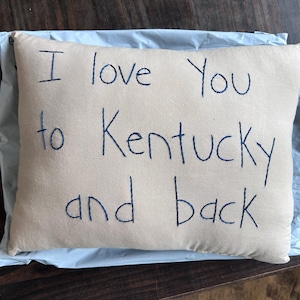 I love You
to Kentucky
and back